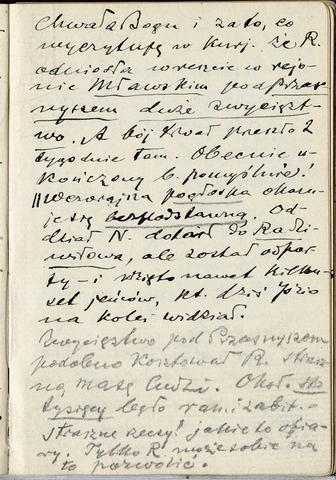 Chwała Bogu i za to, co
wyczytuję w Kurj. że R.
odniosła wreszcie w rejo-
nie Mławskim pod Przas-
nyszem duże zwycięst-
wo. A bój trwał przeszło 2
tygodnie tam. Obecnie u-
kończony b. pomyślnie!
Wczorajsza pogłoska okazu-
je się bezpodstawną. Od-
dział N. dotarł do Radzi-
wiłowa, ale został odpar-
ty – i wzięto nawet kilku-
set jeńców, kt. dziś Józio
na kolei widział.
Zwycięstwo pod Przasnyszem
podobno kosztował R. strasz-
ną masę ludzi. Około sto
tysięcy legło ran. i zabit. –
Straszne rzeczy! jakie to ofia-
ry. Tylko R. może sobie na
to pozwolić.